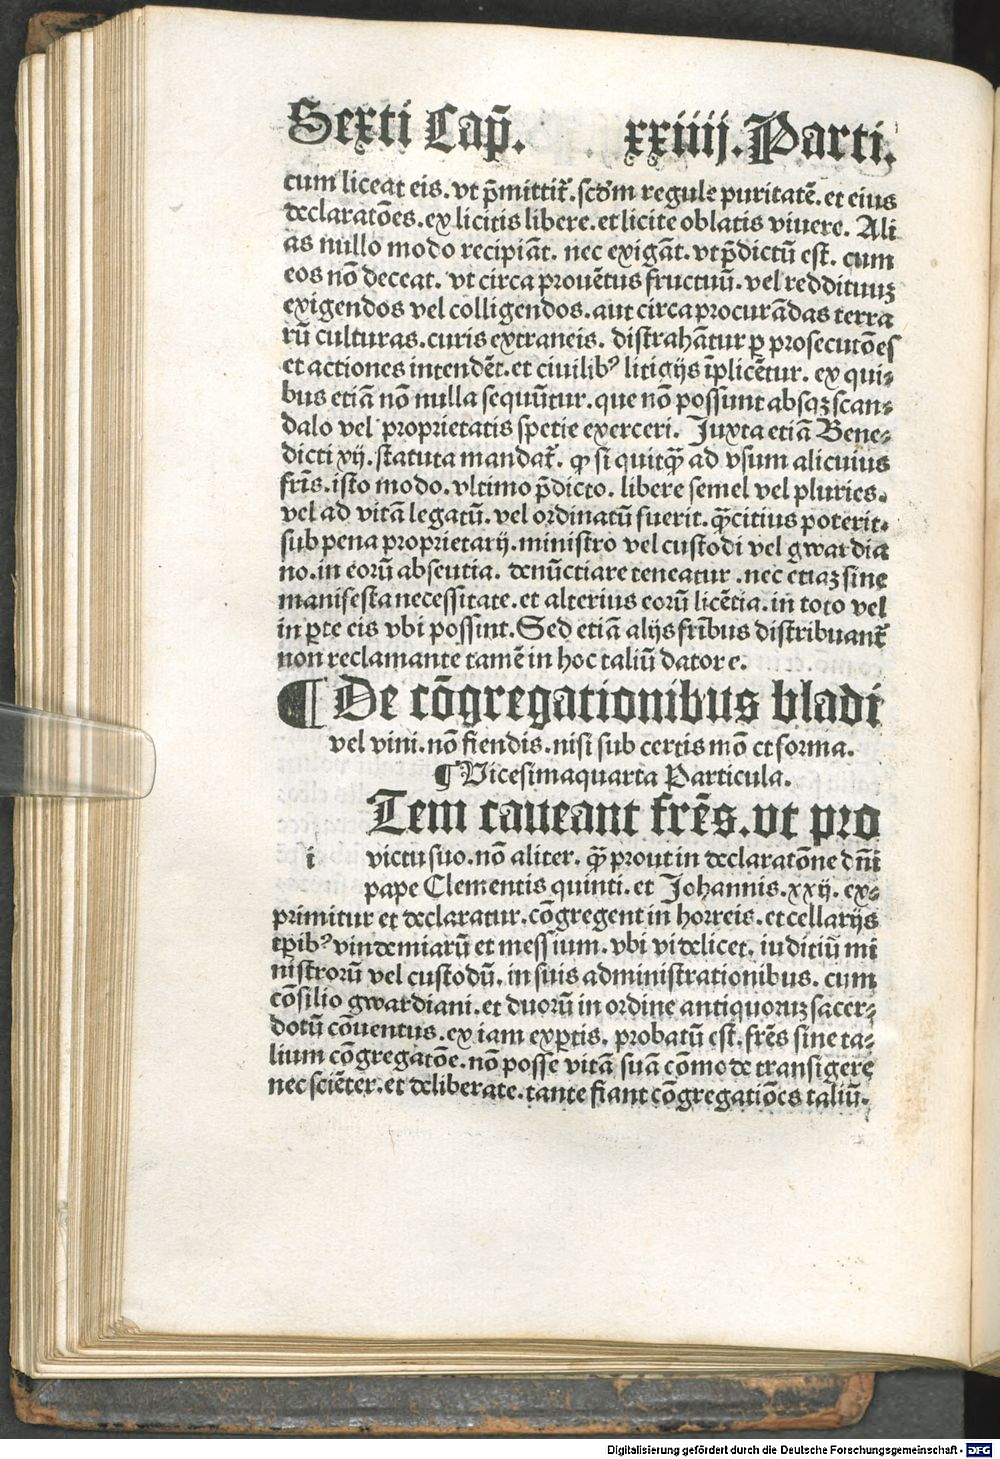 Sexti Cap̃. xxiiij. Parti.
cum liceat eis. vt p̄mittit᷑. scd̄m regule puritatē. et eius
declaratōes. ex licitis libere. et licite oblatis viuere. Ali
as nullo modo recipiāt. nec exigāt. vt p̄dictū est. cum
eos nō deceat. vt circa prouētus fructuū. vel reddituuꝫ
exigendos vel colligendos. aut circa procurādas terra
rū culturas. curis extraneis. distrahātur ꝑ prosecutōes
et actiones intendēt. et ciuilibꝰ litigijs īplicētur. ex qui⸗
bus etiā nō nulla sequūtur. que nō possunt absqꝫ scan⸗
dalo vel proprietatis spetie exerceri. Juxta etiā Bene⸗
dicti xij. statuta mandat᷑. ꝙ si quitq̄ ad vsum alicuius
fr̄is. isto modo. vltimo p̄dicto. libere semel vel pluries.
vel ad vitā legatū. vel ordinatū fuerit. q̄citius poterit.
sub pena proprietarij. ministro vel custodi vel gwardia
no. in eorū absentia. denūctiare teneatur. nec etiaꝫ sine
manifesta necessitate. et alterius eorū licētia. in toto vel
in ꝑte eis vbi possint. Sed etiā alijs fr̄ibus distribuant᷑
non reclamante tamē in hoc taliū datore.
¶ De cōgregationibus bladi
vel vini. nō fiendis. nisi sub certis mō et forma.
¶ Vicesimaquarta Particula.
i Tem caueant frēs. vt pro
victu suo. nō aliter. q̄ prout in declaratōne dn̄i
pape Clementis quinti. et Johannis. xxij. ex⸗
primitur et declaratur. cōgregent in horreis. et cellarijs
tꝑibꝰ vindemiarū et messium. vbi videlicet. iuditiū mi
nistrorū vel custodū. in suis administrationibus. cum
cōsilio gwardiani. et duorū in ordine antiquoruꝫ sacer⸗
dotū cōuentus. ex iam exꝑtis. probatū est. frēs sine ta⸗
lium cōgregatōe. nō posse vitā suā cōmode transigere
nec sciēter. et deliberate. tante fiant cōgregatiōes taliū.
Digitalisierung gefördert durch die Deutsche Forschungsgemeinschaft - DFG